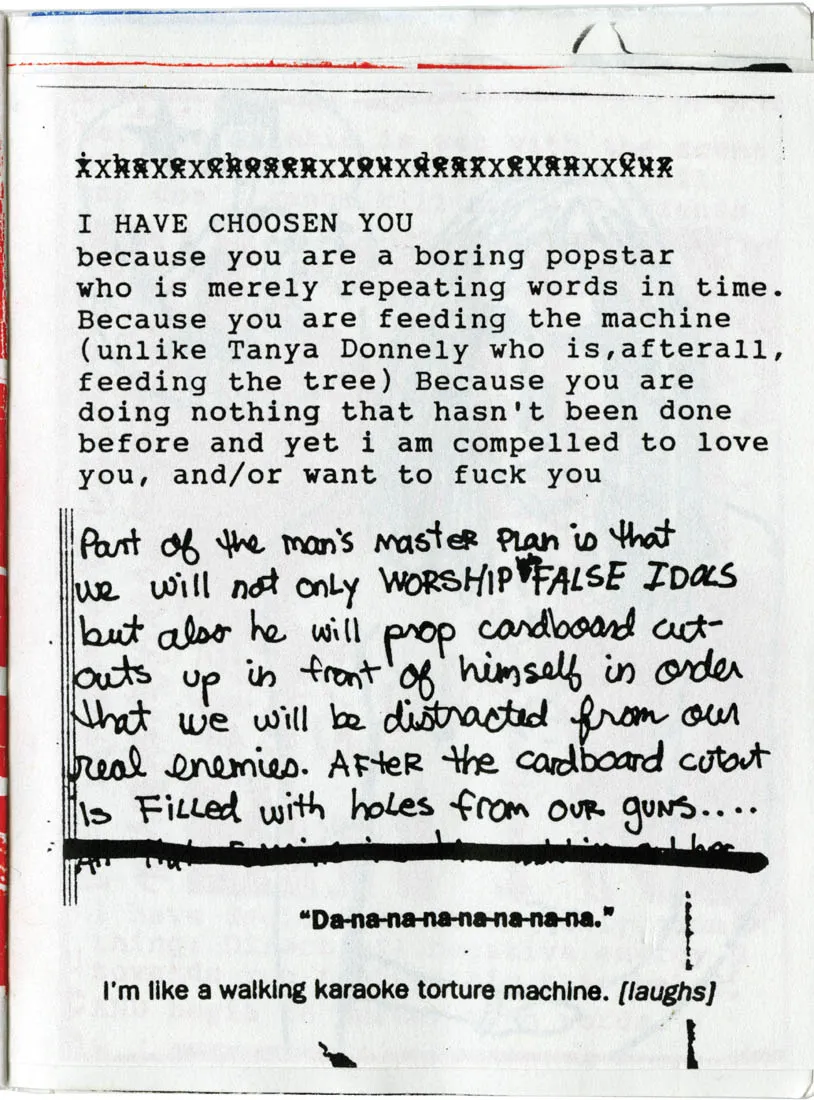 I HAVE CHOOSEN YOU
because you are a boring popstar
who is merely repeating words in time.
Because you are feeding the machine
(unlike Tanya Donnely who is,afterall,
feeding the tree) Because you are
doing nothing that hasn't been done
before and yet i am compelled to love
you, and/or want to fuck you
Part of the man's master plan is that
we will not only WORSHIP FALSE IDOLS
but also he will prop cardboard cut-
outs up in front of himself in order
that we will be distracted from our
real enemies. AFteR the cardboard cutout
is FiLLed with hoLes from OUR guNs....
“Da-na-na-na-na-na-na-na.”
I'm like a walking karaoke torture machine. [laughs]